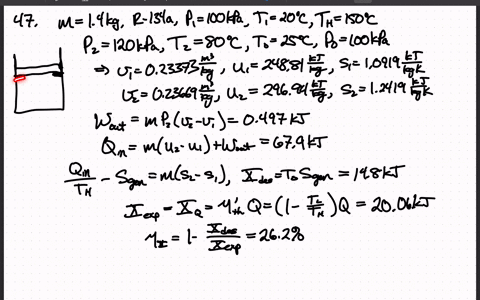 47. m=1.4kg, R-134a, P₁=100kPa, T₁=20°C, T_H=150°C
P₂=120kPa, T₂=80°C, T₀=25°C, P₀=100kPa
⇒ v₁=0.23373 m³/kg, u₁=248.81 kJ/kg, s₁=1.0919 kJ/kgK
v₂=0.23669 m³/kg, u₂=296.94 kJ/kg, s₂=1.2419 kJ/kgK
W_out = mP₂(v₂-v₁)=0.497kJ
Q_in = m(u₂-u₁)+W_out=67.9kJ
Q_in/T_H - S_gen = m(s₂-s₁), X_des=T₀S_gen=14.8kJ
X_exp=X_Q=η'_th Q=(1-T_L/T_H)Q=20.06kJ
η_II=1-X_des/X_exp=26.2%